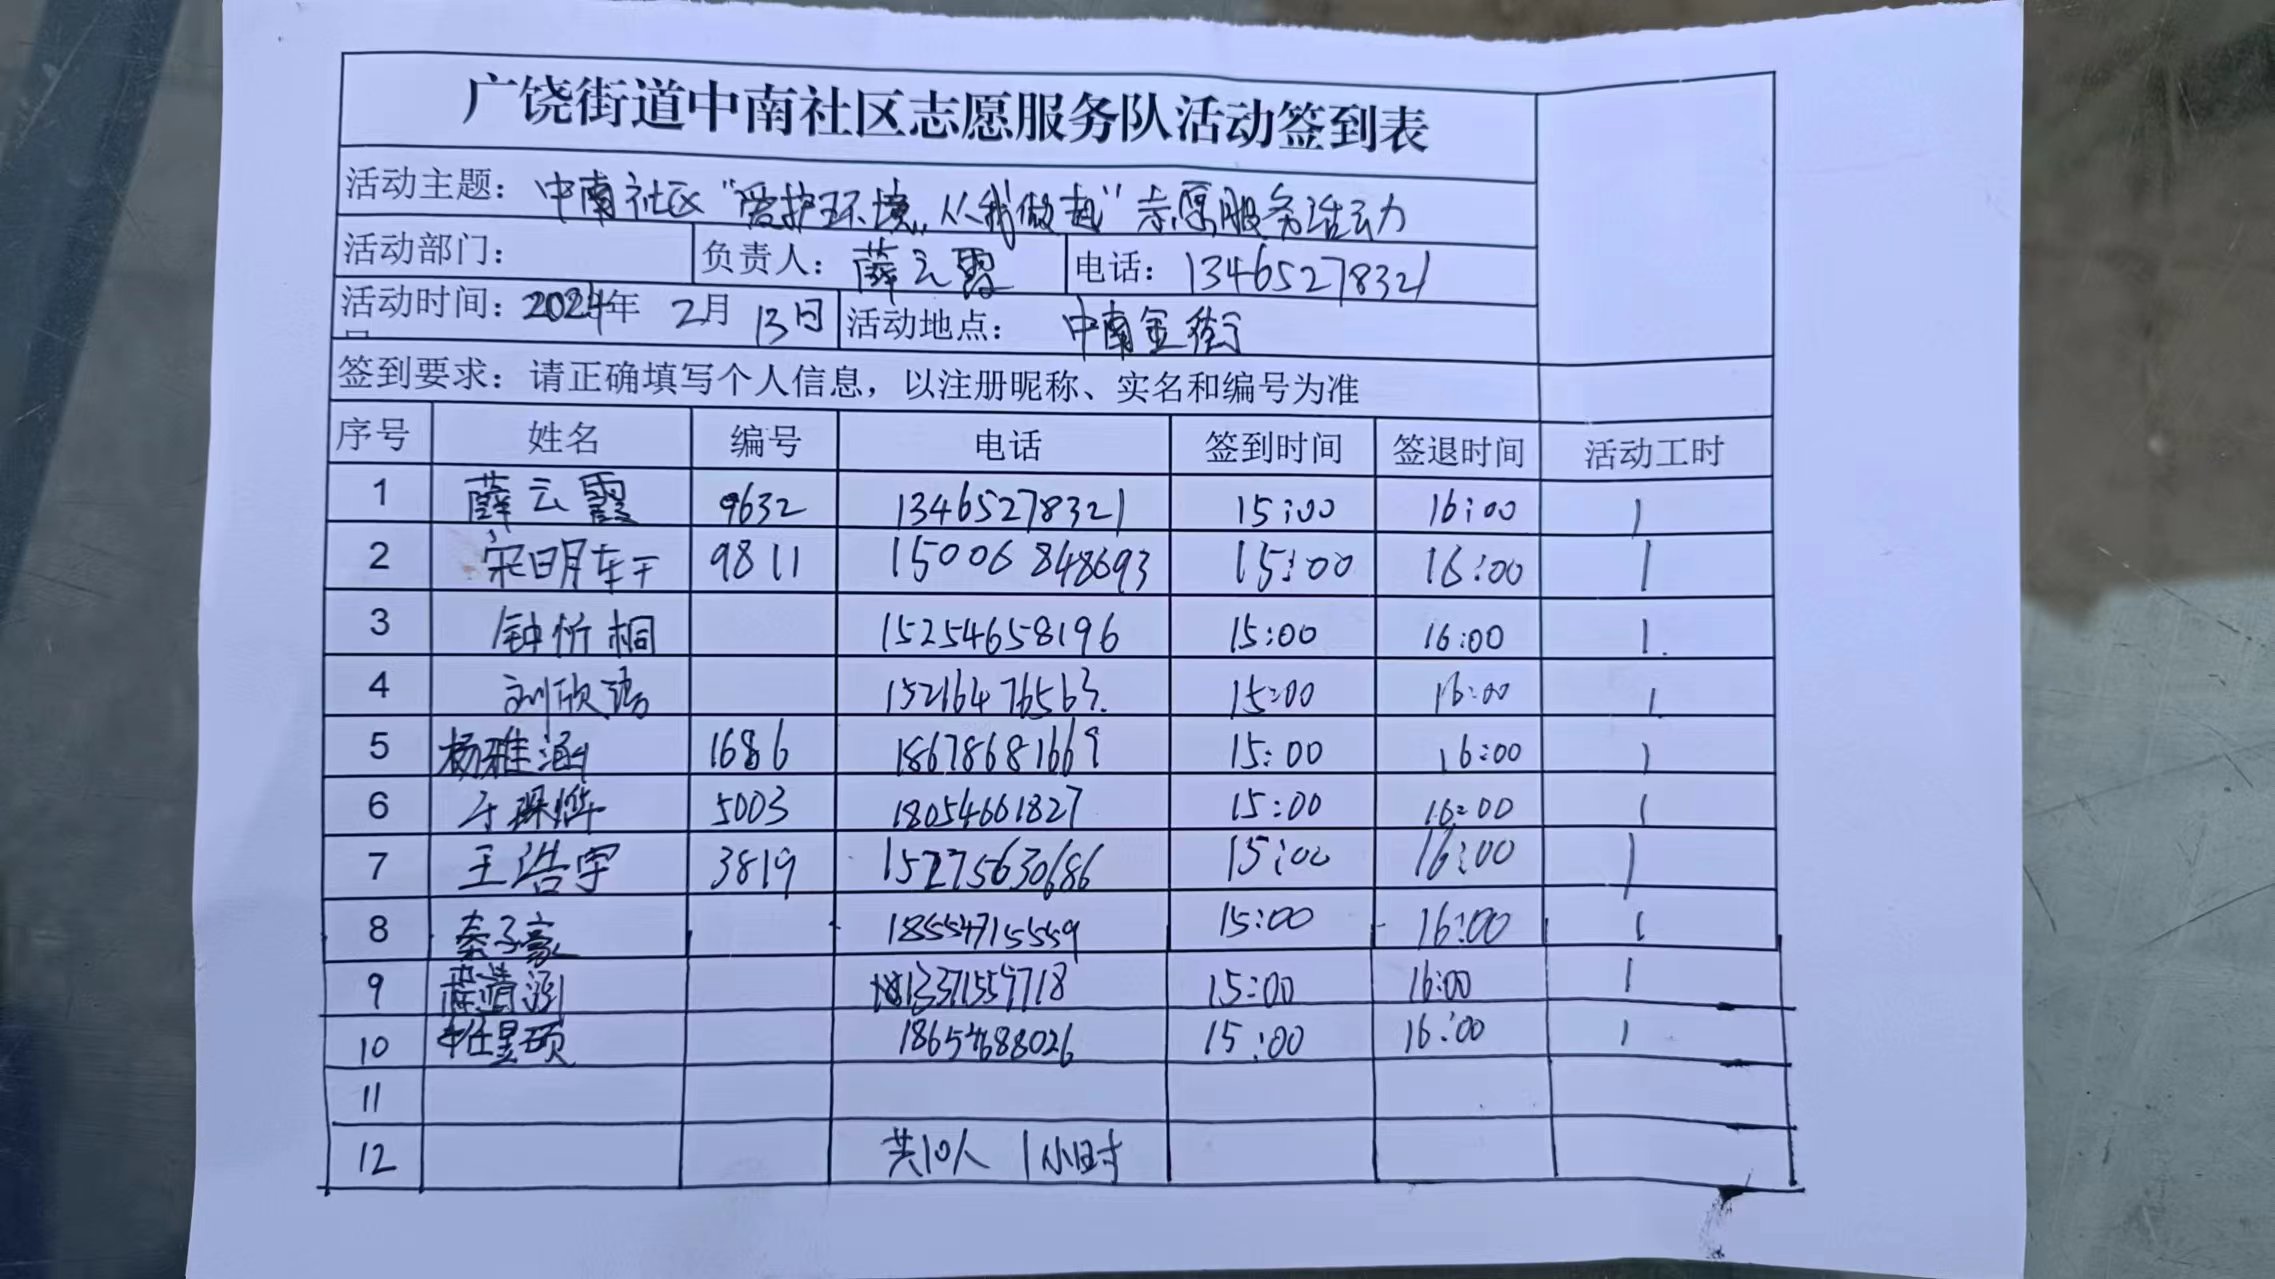 广饶街道中南社区志愿服务队活动签到表
活动主题：中南社区“爱护环境，从我做起”志愿服务活动
活动部门： 负责人：薛云霞 电话：13465278321
活动时间：2024年 2月 13日 活动地点：中南金街
签到要求：请正确填写个人信息，以注册昵称、实名和编号为准
序号 姓名 编号 电话 签到时间 签退时间 活动工时
1 薛云霞 9632 13465278321 15:00 16:00 1
2 宋明轩 9811 15006848693 15:00 16:00 1
3 钟忻桐 15254658196 15:00 16:00 1
4 刘欣 15216476563 15:00 16:00 1
5 杨雅涵 1686 18678681669 15:00 16:00 1
6 5003 18054661827 15:00 16:00 1
7 王浩宇 3819 15275630686 15:00 16:00 1
8 秦子豪 18554715559 15:00 16:00 1
9 15:00 16:00 1
10 15:00 16:00 1
11
12 共10人 1小时